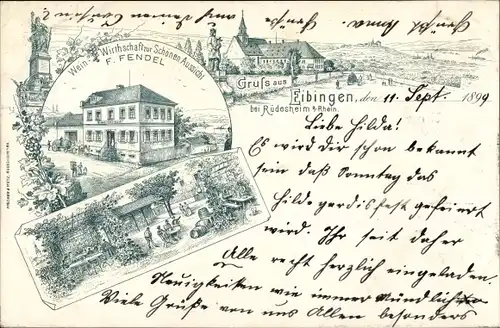 Wein-Wirthschaft zur Schönen Aussicht
F. FENDEL
Gruß aus
Eibingen, den 11. Sept. 1899
bei Rüdesheim a/Rhein.
Liebe Hilda!
Es wird Dir schon bekannt
sein daß Sonntag das
Hildegardisfest gefeiert
wird. Ihr seit daher
Alle recht herzlich eingeladen.
Neuigkeiten wie immer mündlich
Viele Grüße von uns Allen besonders